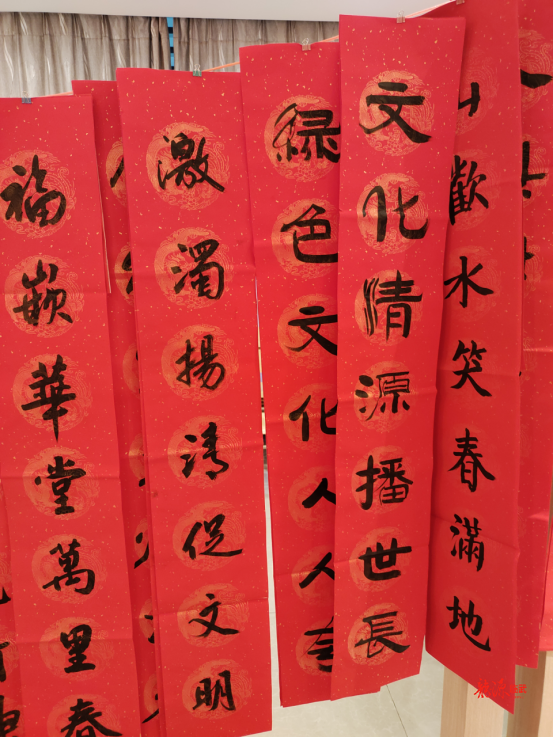 福嵌華堂萬里春
激濁揚清促文明
緑色文化人人
文化清源播世長
山歡水笑春滿地